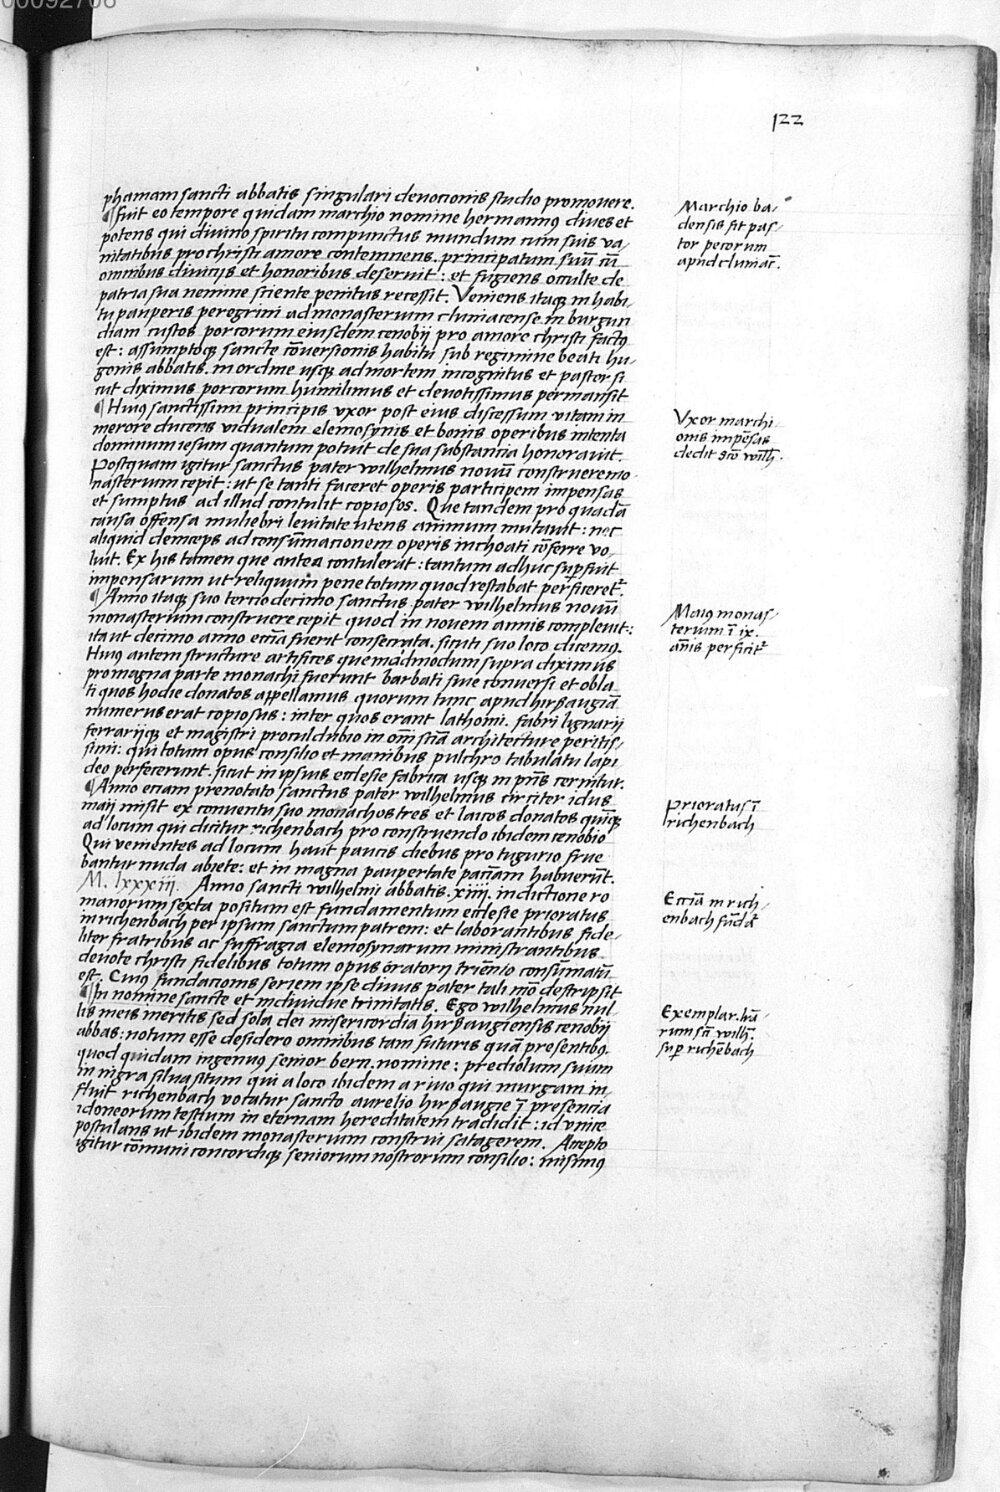 00092706
122
phamam sancti abbatis singulari deuocionis studio promouere.
¶ fuit eo tempore quidam marchio nomine hermannꝰ diues et
potens qui diuino spiritu compunctus mundum cum suis va⸗
nitatibus pro christi amore contemnens. principatum suū cū
omnibus diuicijs et honoribus deseruit: et fugiens occulte de
patria sua nemine sciente penitus recessit. Veniens itaqꝫ in habi⸗
tu pauperis peregrini ad monasterium cluniacense in burgun
diam custos porcorum eiusdem cenobij pro amore christi factꝰ
est: assumptoqꝫ sancte cōuersionis habitu sub regimine beati hu⸗
gonis abbatis. in ordine vsqꝫ ad mortem incognitus et pastor si
cut diximus porcorum humilimus et deuotissimus permansit
¶ Huiꝰ sanctissimi principis vxor post eius discessum vitam in
merore ducens vidualem elemosynis et bonis operibus intenta
dominum iesum quantum potuit de sua substancia honorauit.
Postquam igitur sanctus pater wilhelmus nouū construere mo⸗
nasterium cepit: vt se tanti faceret operis participem impensas
et sumptus ad illud contulit copiosos. Que tandem pro quadā
causa offensa muliebri leuitate vtens animum mutauit: nec
aliquid deinceps ad consūmacionem operis inchoati cōferre vo⸗
luit. Ex his tamen que antea contulerat: tantum adhuc suꝑfuit
impensarum vt reliquum pene totum quod restabat perficeret᷑.
¶ Anno itaqꝫ suo terciodecimo sanctus pater wilhelmus nouū
monasterium construere cepit quod in nouem annis compleuit:
ita vt decimo anno ecc̄ia fuerit consecrata. sicuti suo loco dicemꝰ.
Huiꝰ autem structure artifices quemadmodum supra diximus
pro magna parte monachi fuerunt barbati siue conuersi et obla
ti quos hodie donatos appellamus quorum tunc apud hirsaugiā
numerus erat copiosus: inter quos erant lathomi. fabri lignarij
ferrarijqꝫ et magistri proculdubio in om̄i sciā architecture peritis⸗
simi: qui totum opus consilio et manibus pulchro tabulatu lapi
deo perfecerunt. sicut in ipsius ecclesie fabrica vsqꝫ in p̄ns cernitur.
¶ Anno eciam prenotato sanctus pater wilhelmus circiter idus
maij misit ex conuentu suo monachos tres et laicos donatos quinqꝫ
ad locum qui dicitur richenbach pro construendo ibidem cenobio
Qui venientes ad locum haut paucis diebus pro tugurio frue
bantur nuda abiete: et in magna paupertate paciam habuerūt.
M. lxxxiii. Anno sancti wilhelmi abbatis. xiiii. indictione ro
manorum sexta positum est fundamentum ecclesie prioratus
in richenbach per ipsum sanctum patrem: et laborantibus fide⸗
liter fratribus ac suffragia elemosynarum ministrantibus
deuote christi fidelibus totum opus oratorij triēnio consūmatū
est. Cuiꝰ fundacionis seriem ipse diuus pater tali mō descripsit
¶ In nomine sancte et indiuidue trinitatis. Ego wilhelmus nul⸗
lis meis meritis sed sola dei misericordia hirsaugiensis cenobij
abbas: notum esse desidero omnibus tam futuris quā presentibꝰ.
quod quidam ingenuus senior bern. nomine: prediolum suum
in nigra silua situm qui a loco ibidem a riuo qui murgam in⸗
fluit richenbach vocatur sancto aurelio hirsaugie ī presencia
idoneorum testium in eternam hereditatem tradidit: id vnice
postulans vt ibidem monasterium construi satagerem. Accepto
igitur cōmuni concordiqꝫ seniorum nostrorum consilio: misimꝰ
Marchio ba⸗
densis fit pas⸗
tor pecorum
apud cluniac̄.
Vxor marchi
onis impēsas
dedit sc̄o wilh̄.
Maiꝰ monas⸗
terium ī ix.
an̄is perficit᷑
Prioratus ī
richenbach
Ecc̄ia in rich⸗
enbach fūdat᷑
Exemplar. lr̄a⸗
rum sc̄i wilh̄.
suꝑ richēbach